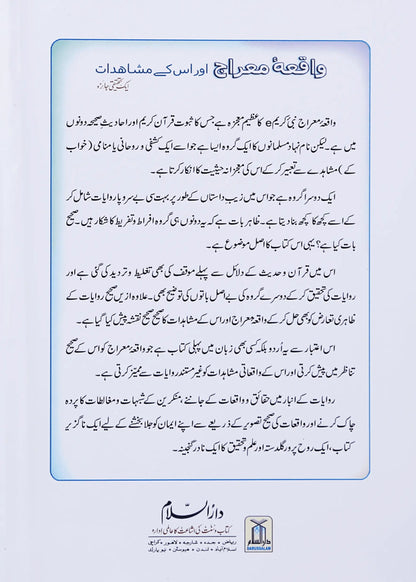 واقعۂ معراج اور اس کے مشاہدات
ایک تحقیقی جائزہ
واقعۂ معراج نبی کریم e کا عظیم معجزہ ہے جس کا ثبوت قرآن کریم اور احادیث صحیحہ دونوں
میں ہے۔ لیکن نام نہاد مسلمانوں کا ایک گروہ ایسا ہے جو اسے ایک کشفی و روحانی یا منامی (خواب
کے) مشاہدے سے تعبیر کر کے اس کی معجزانہ حیثیت کا انکار کرتا ہے۔
ایک دوسرا گروہ ہے جو اس میں زیب داستاں کے طور پر بہت سی بے سروپا روایات شامل کر
کے اسے کچھ کا کچھ بنا دیتا ہے۔ ظاہر بات ہے کہ یہ دونوں ہی گروہ افراط و تفریط کا شکار ہیں۔ صحیح
بات کیا ہے؟ یہی اس کتاب کا اصل موضوع ہے۔
اس میں قرآن و حدیث کے دلائل سے پہلے موقف کی بھی تغلیط و تردید کی گئی ہے اور
روایات کی تحقیق کر کے دوسرے گروہ کی بے اصل باتوں کی توضیح بھی۔ علاوہ ازیں صحیح روایات کے
ظاہری تعارض کو بھی حل کر کے واقعۂ معراج اور اس کے مشاہدات کا صحیح نقشہ پیش کیا گیا ہے۔
اس اعتبار سے یہ اُردو بلکہ کسی بھی زبان میں پہلی کتاب ہے جو واقعۂ معراج کو اس کے صحیح
تناظر میں پیش کرتی اور اس کے واقعاتی مشاہدات کو غیر مستند روایات سے ممیز کرتی ہے۔
روایات کے انبار میں حقائق و واقعات کے جاننے، منکرین کے شبہات و مغالطات کا پردہ
چاک کرنے اور واقعات کی صحیح تصویر کے ذریعے سے اپنے ایمان کو جلا بخشنے کے لیے ایک ناگزیر
کتاب، ایک روح پرور گلدستہ اور علم و تحقیق کا ایک نادر گنجینہ۔
دارالسلام
کتاب و سنت کی اشاعت کا عالمی ادارہ
ریاض • جدہ • شارجہ • لاہور • کراچی
اسلام آباد • لندن • ہیوسٹن • نیو یارک
دارالسلام
DARUSSALAM